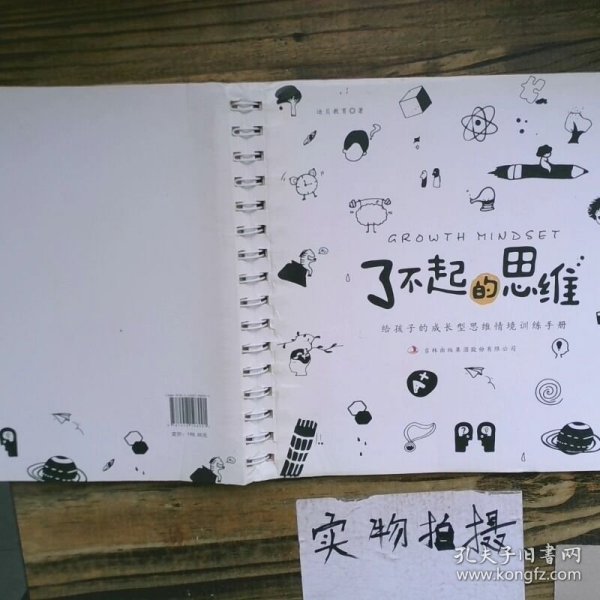 迪贝教育◎著
GROWTH MINDSET
了不起的思维
给孩子的成长型思维情境训练手册
吉林出版集团股份有限公司
实物拍摄
孔夫子旧书网
www.kongfz.com